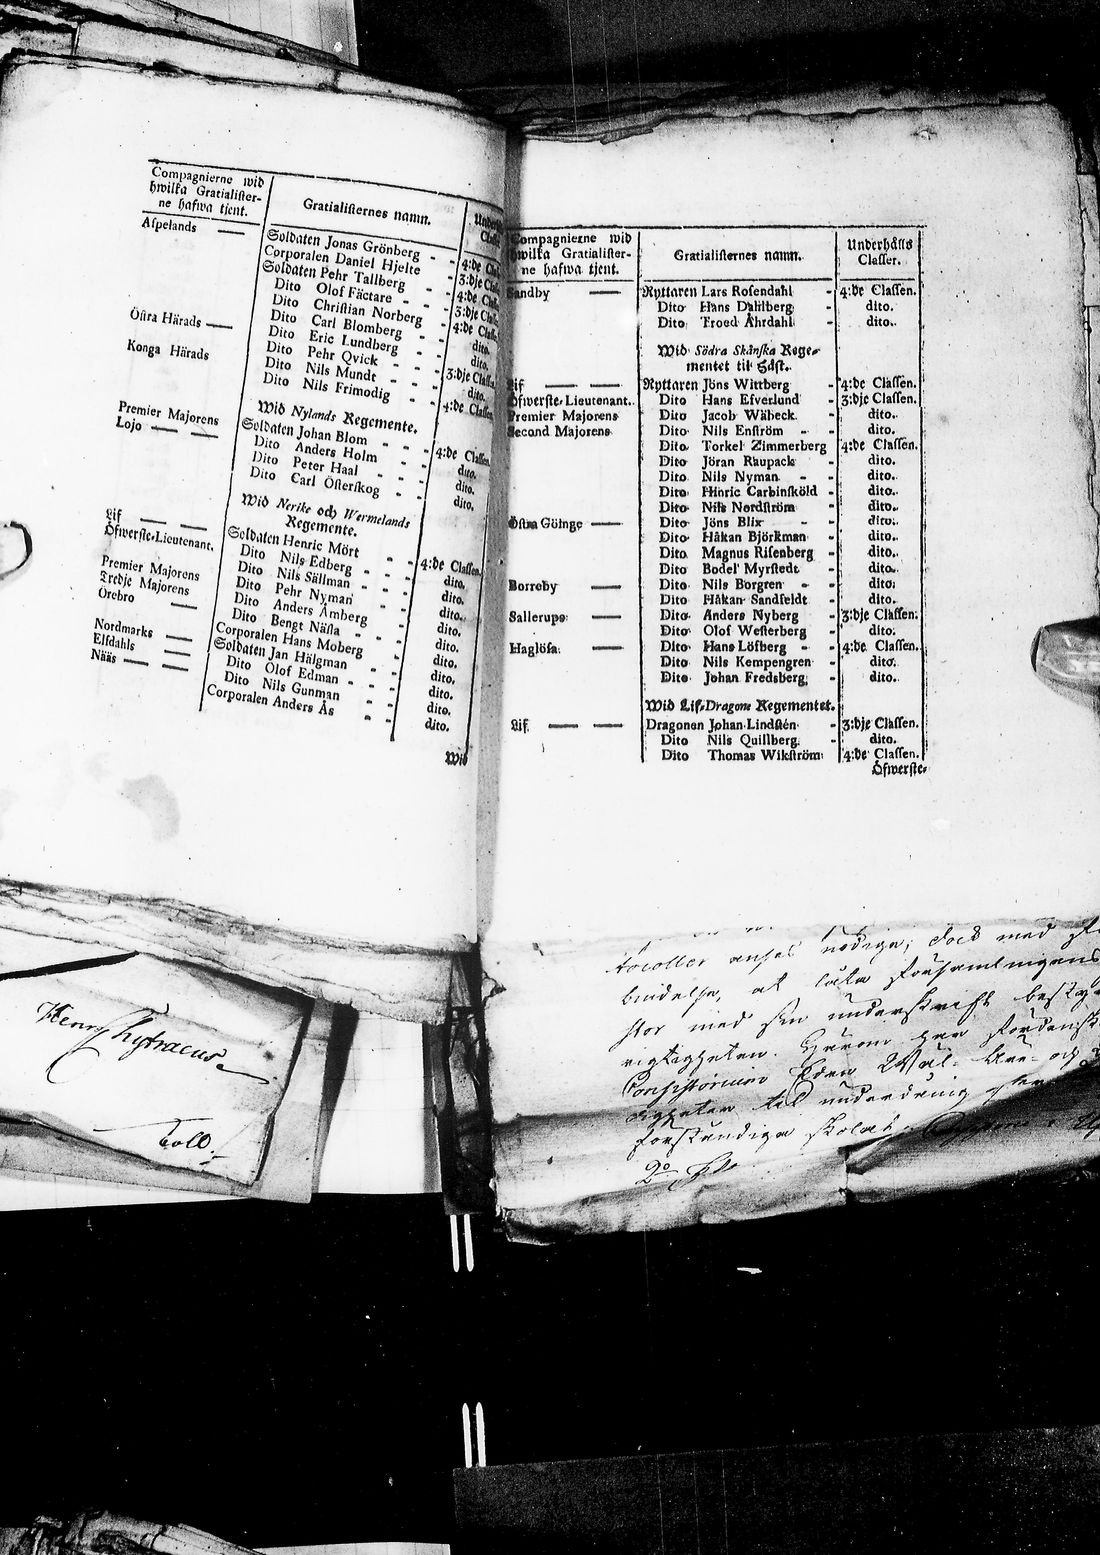 Compagnierne wid
hwilka Gratialister-
ne hafwa tjent.
Gratialisternes namn.
Aspelands —
Soldaten Jonas Grönberg - - 4:de Clas
Corporalen Daniel Hjelte 3:dje Clas
Soldaten Pehr Tallberg - - 4:de Clas
Dito Olof Fäctare - - 3:dje Clas
Dito Christian Norberg - 4:de Clas
Östra Härads — Dito Carl Blomberg - - dito.
Dito Eric Lundberg - - dito.
Konga Härads Dito Pehr Qvick - - - 3:dje Classen
Dito Nils Mundt - - - dito.
Dito Nils Frimodig - - 4:de Classen
Wid Nylands Regemente.
Premier Majorens Soldaten Johan Blom - - 4:de Classen.
Lojo — — Dito Anders Holm - - dito.
Dito Peter Haal - - dito.
Dito Carl Österskog - - dito.
Wid Nerike och Wermelands
Regemente.
Lif — — Soldaten Henric Mört - - 4:de Classen.
Öfwerste-Lieutenant. Dito Nils Edberg - - - dito.
Dito Nils Sällman - - - dito.
Premier Majorens Dito Pehr Nyman - - dito.
Tredje Majorens Dito Anders Åmberg - - dito.
Örebro — Dito Bengt Näsla - - - dito.
Corporalen Hans Moberg - - dito.
Nordmarks — Soldaten Jan Hälgman - - dito.
Elfdahls — Dito Olof Edman - - - dito.
Nääs — — Dito Nils Gunman - - dito.
Corporalen Anders Ås - - dito.
Wid
Compagnierne wid
hwilka Gratialister-
ne hafwa tjent.
Gratialisternes namn.
Underhålls
Classer.
Sandby — Ryttaren Lars Rosendahl - 4:de Classen.
Dito Hans Dahlberg - dito.
Dito Troed Åhrdahl - dito.
Wid Södra Skånska Rege-
mentet til Häst.
Lif — — Ryttaren Jöns Wittberg - 4:de Classen.
Öfwerste-Lieutenant. Dito Hans Efverlund - 3:dje Classen.
Premier Majorens Dito Jacob Wäbeck - dito.
Second Majorens Dito Nils Enström - - dito.
Dito Torkel Zimmerberg 4:de Classen.
Dito Jöran Raupack - dito.
Dito Nils Nyman - - dito.
Dito Hinric Carbinsköld - dito.
Dito Nils Nordström - dito.
Östra Göinge — Dito Jöns Blix - dito.
Dito Håkan Björkman - dito.
Dito Magnus Risenberg - dito.
Dito Bodel Myrstedt - dito.
Borreby — Dito Nils Borgren - - dito.
Dito Håkan Sandfeldt - dito.
Sallerups — Dito Anders Nyberg - 3:dje Classen.
Dito Olof Westerberg - dito.
Haglösa — Dito Hans Löfberg - - 4:de Classen.
Dito Nils Kempengren - dito.
Dito Johan Fredsberg - dito.
Wid Lif-Dragone Regementet.
Lif — — Dragonen Johan Lindstén - 3:dje Classen.
Dito Nils Quislberg - dito.
Dito Thomas Wikström 4:de Classen.
Öfwerste-
nödiga; dock med
bindelse, at låta församlingens
med sin underskrift
rigtigheten.
Consistorium
til underdånig
förständiga
Henr Chytraeus